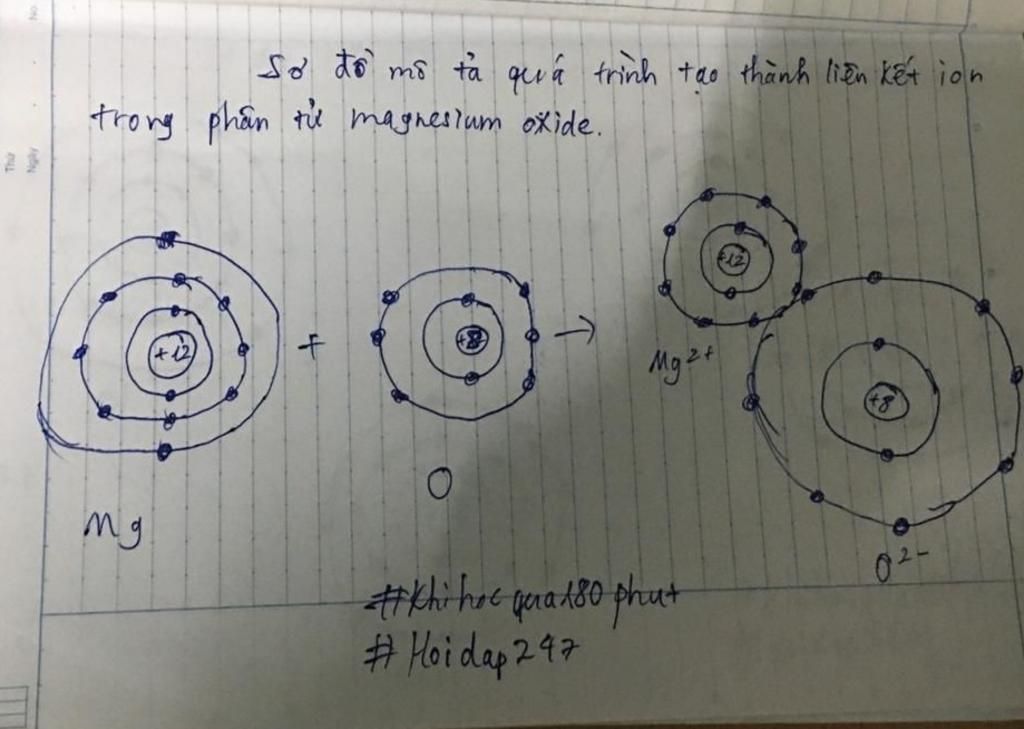 Sơ đồ mô tả quá trình tạo thành liên kết ion
trong phân tử magnesium oxide.
+12
+
+8
→
+12
+8
Mg
O
Mg2+
O2-
#Khi hoc qua 180 phut
#Hoidap247
No.
Thứ
Ngày